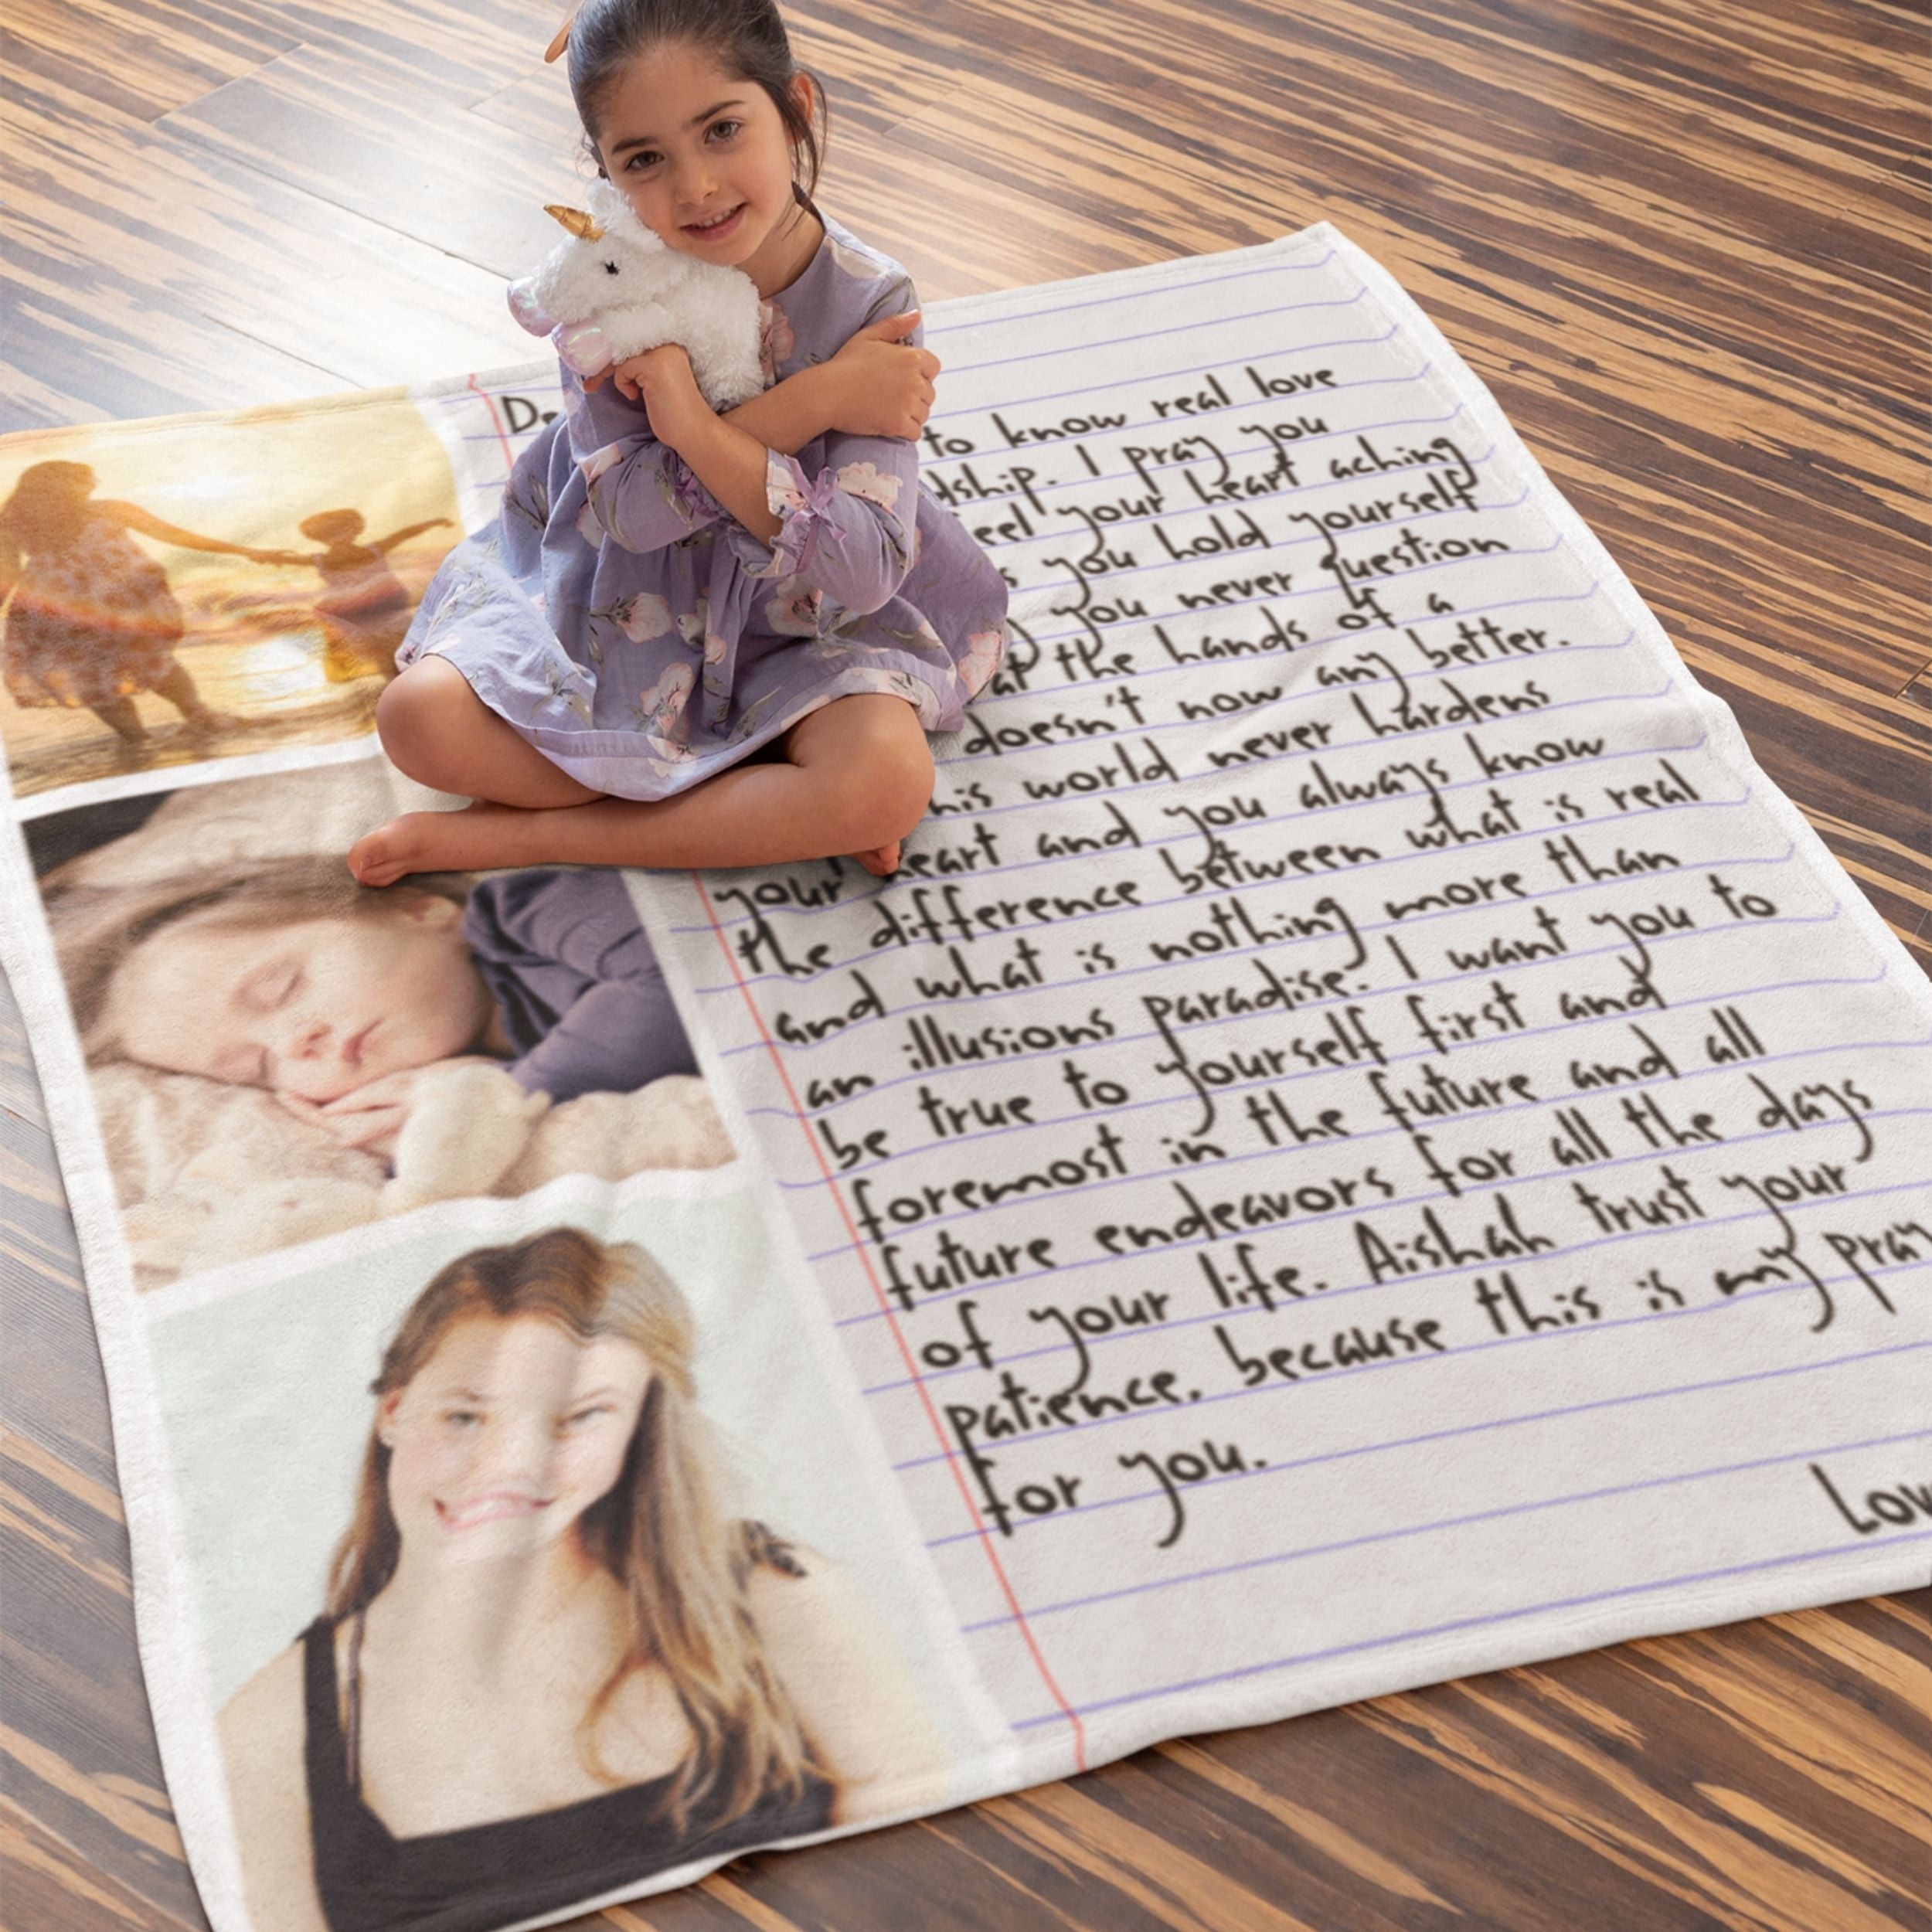 De
to know real love
ship. I pray you
eel your heart aching
s you hold yourself
you never question
at the hands of a
doesn't now any better.
his world never hardens
your heart and you always know
the difference between what is real
and what is nothing more than
an illusions paradise. I want you to
be true to yourself first and
foremost in the future and all
future endeavors for all the days
of your life. Aishah trust your
patience, because this is my pray
for you.
Lov